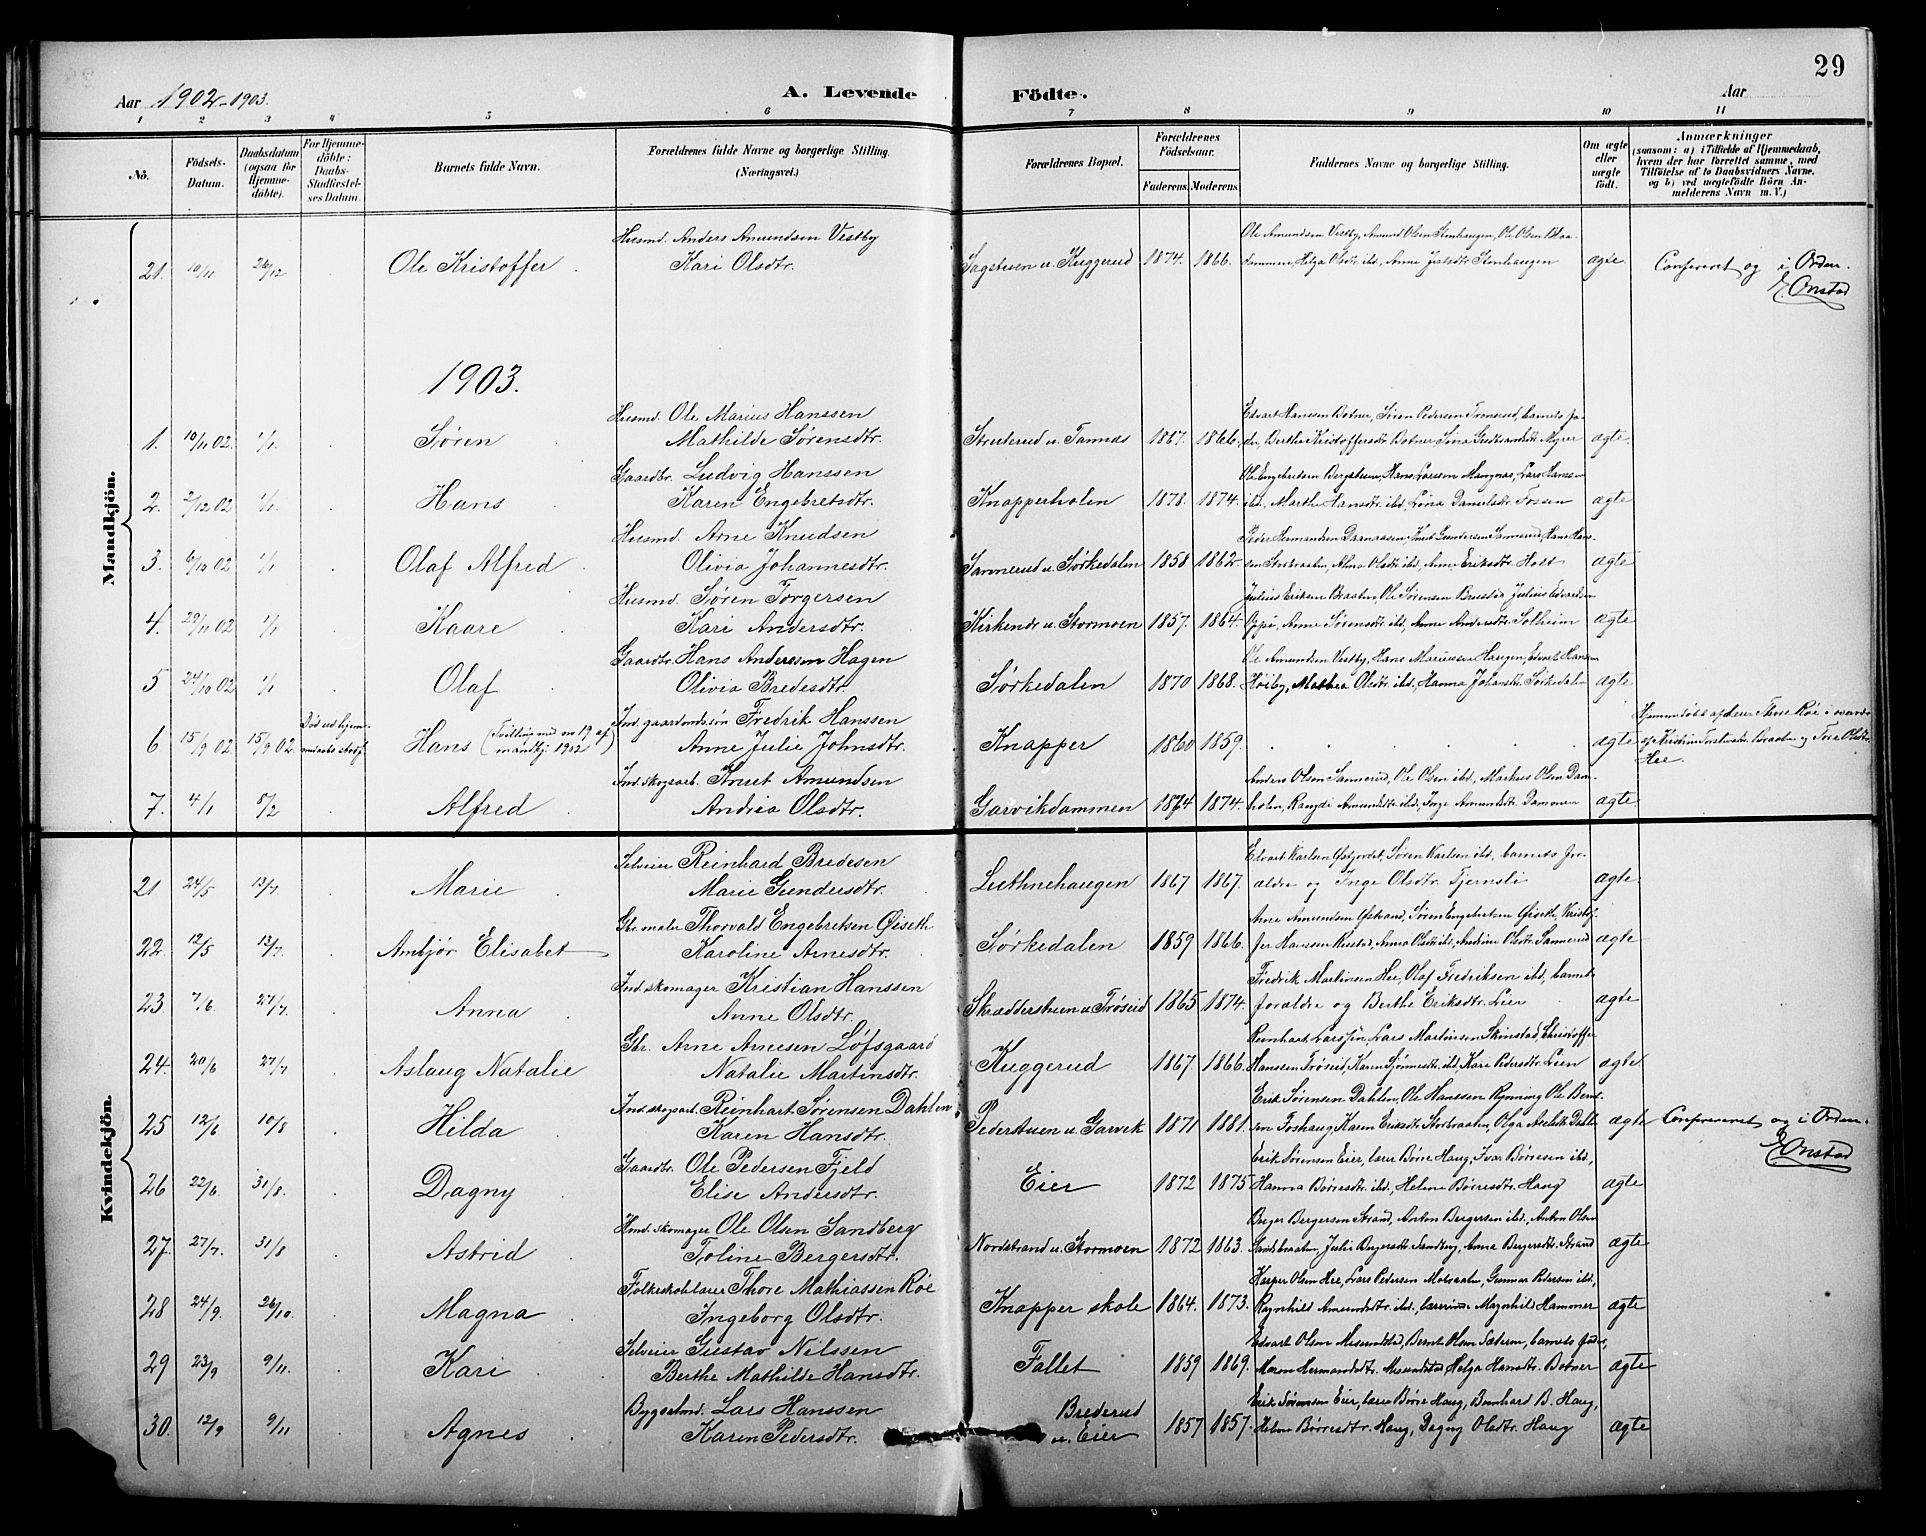 29
Aar 1902-1903.
A. Levende
Födte.
Aar
1 2 3 4 5 6 7 8 9 10 11
No.
Födsels-Datum.
Daabsdatum (ogsaa for Hjemmedöbte).
For Hjemmedöbte: Daabs-Stadfæstelses Datum.
Barnets fulde Navn.
Forældrenes fulde Navne og borgerlige Stilling. (Næringsvei.)
Forældrenes Bopæl.
Forældrenes Födselsaar.
Faderens. Moderens.
Faddernes Navne og borgerlige Stilling.
Om ægte eller uægte födt.
Anmærkninger
(saasom: a) i Tilfælde af Hjemmedaab, hvem der har forrettet samme, med Tilföielse af to Daabsvidners Navne, og b) ved uægtefödte Börn Anmelderens Navn m. V.)
Mandkjön.
Husmd. Anders Amundsen Vestby
Ole Amundsen Vestby, Amund Olsen Stenhaugen, Ole Olsen
21. 10/11 26/12 Ole Kristoffer Kari Olsdtr. Sagstuen u. Kuggerud 1874. 1866. Helga Olsdtr. ibd., Anne Stenhaugen ægte Confereret og i Orden.
E. Onstad
1903.
Husmd. Ole Marius Hanssen
Edvart Hanssen Botner, Søren Pedersen barnets fa-
1. 10/11 02. 1/1. Søren Mathilde Sørensdtr. Struterud u. Tannæs 1867. 1866. der, Berthe Kristoffersdt. Botner Myrer ægte.
Gaardbr. Ludvig Hanssen
Ole Engebretsen Hans Larssen Lars Hansen
2. 2/12 02 1/1. Hans Karen Engebretsdtr. Knapperholen 1878. 1874. ibd. Marthe Hansdtr. ibd., Danielsdtr. ægte
Husmd. Arne Knudsen
Peder Hermansen Knut Gundersen Sannerud, Hans Hans-
3. 6/10 02 1/1 Olaf Alfred Olivia Johannesdtr. Sannerud u. Sørkedalen 1858 1862. sen Storbraaten, Olsdtr. ibd., Anne Eriksdtr. Holt ægte
Husmd. Søren Torgersen
Julius Eriksen Braaten, Ole Sørensen Julius Edvardsen
4. 29/11 02 1/1 Kaare Kari Andersdtr. Kirkendr u. Stormoen 1857. 1864. Anne Sørensdtr. ibd., Anne Andersdtr. Solheim ægte
Gaardbr. Hans Anderssen Hagen
Ole Amundsen Vestby, Hans Mariussen Haugen, Edvart Hansen
5 24/10 02 1/1 Olaf Olivia Bredesdtr. Sørkedalen 1870 1868. Høiby, Mathea Olsdtr. ibd., Hanna Johansdtr. Sørkedalen ægte
Ind. gaardmdssøn Fredrik Hanssen
Hjemmedøbt af lærer Thore Røe i overvær
6 15/9 02 15/9 02. Hans (Tvilling med en 19 af mandkj: 1902) Anne Julie Johnsdtr. Knapper 1860 1859. ægte af Kristine Braaten og Tore Olsdtr.
Hee.
Ind. skogsarb. Knut Amundsen
Anders Olsen Sannerud, Ole Olsen ibd., Markus Olsen Dam-
7. 4/1 8/2 Alfred Andrea Olsdtr. Garvikdammen 1874 1874. holen, Amundsdtr. ibd., Inge Amundsdtr. Dammen ægte
Kvindekjön.
Selveier Reinhard Bredesen
Edvart Karlsen Søren Karlsen ibd., barnets for-
21 24/5 13/7 Marie Marie Gundersdtr. Luthnehaugen 1867 1867. ældre og Inge Olsdtr. Tjernsli ægte.
Gbr. maler Thorvald Engebretsen Øiseth
Arne Amundsen Søren Engebretsen Øiseth, Kristof-
22. 12/5 13/7. Ambjør Elisabet Karoline Arnesdtr. Sørkedalen 1859 1866. fer Hanssen Anna Olsdtr. ibd., Andrine Olsdtr. Sannerud ægte
Ind. skomager Kristian Hanssen
Fredrik Martinsen Hee, Olaf Fredriksen ibd., barnets
23 7/6. 27/7. Anna Anne Olsdtr. Skrædderstuen u. Trøseid 1865 1874. forældre og Berthe Eriksdtr. Lier ægte
Gbr. Arne Arnesen Løfsgaard
Reinhart Lars Martinsen Skinstad, Christoffer
24. 20/6 27/7 Aslaug Natalie Natalie Martinsdtr. Kuggerud 1867 1866. Hanssen Trøseid, Karen ibd., Kari Pedersdtr. Lien ægte.
Ind. skogsarb. Reinhart Sørensen Dahlen
Erik Sørensen Dahlen, Ole Hanssen Rynning Ole Bernt-
25 12/6 10/8 Hilda Karen Hansdtr. Pederstuen u. Garvik 1871 1881. sen Foshaug, Karen Eriksdtr. Storbraaten, Olga Dahl ægte Confereret og i Orden.
E. Onstad
Gaardbr. Ole Pedersen Fjeld
Erik Sørensen Eier, lærer Børre Haug, Ivar Børresen ibd.,
26 22/6. 31/8. Dagny Elise Andersdtr. Eier 1872 1875 Hanna Børresdtr. ibd., Helene Børresdtr. Haug ægte
Hmd. skomager Ole Olsen Sandberg
Berger Bergersen Strand, Anton Bergersen ibd., Anton Olsen
27. 27/7. 31/8 Astrid Toline Bergersdtr. Nordstrand u. Stormoen 1872 1863. Sandbraaten, Julie Bergersdtr. Sandberg, Anna Bergersdtr. Strand ægte
Folkeskolelærer Thore Mathiassen Røe
Kasper Olsen Hee, Lars Pedersen Gunnar Pedersen ibd.,
28 24/9. 26/10. Magna Ingeborg Olsdtr. Knapper skole 1864. 1873. Ragnhild Amundsdtr. ibd., lærerinne Magnhild Hammer ægte
Selveier Gustav Nilssen
Edvart Olsen Bernt Olsen Sæteren, barnets fader,
29 23/9 9/11. Kari Berthe Mathilde Hansdtr. Fallet 1859 1869. Maren Hermansdtr. Helga Hansdtr. Botner ægte
Bygselmd. Lars Hanssen
Brederud
Erik Sørensen Eier, lærer Børre Haug, Bernhard B. Haug,
30. 12/9 9/11 Agnes Karen Pedersdtr. u. Eier 1857 1857. Helene Børresdtr. Haug, Dagny Olsdtr. Haug ægte